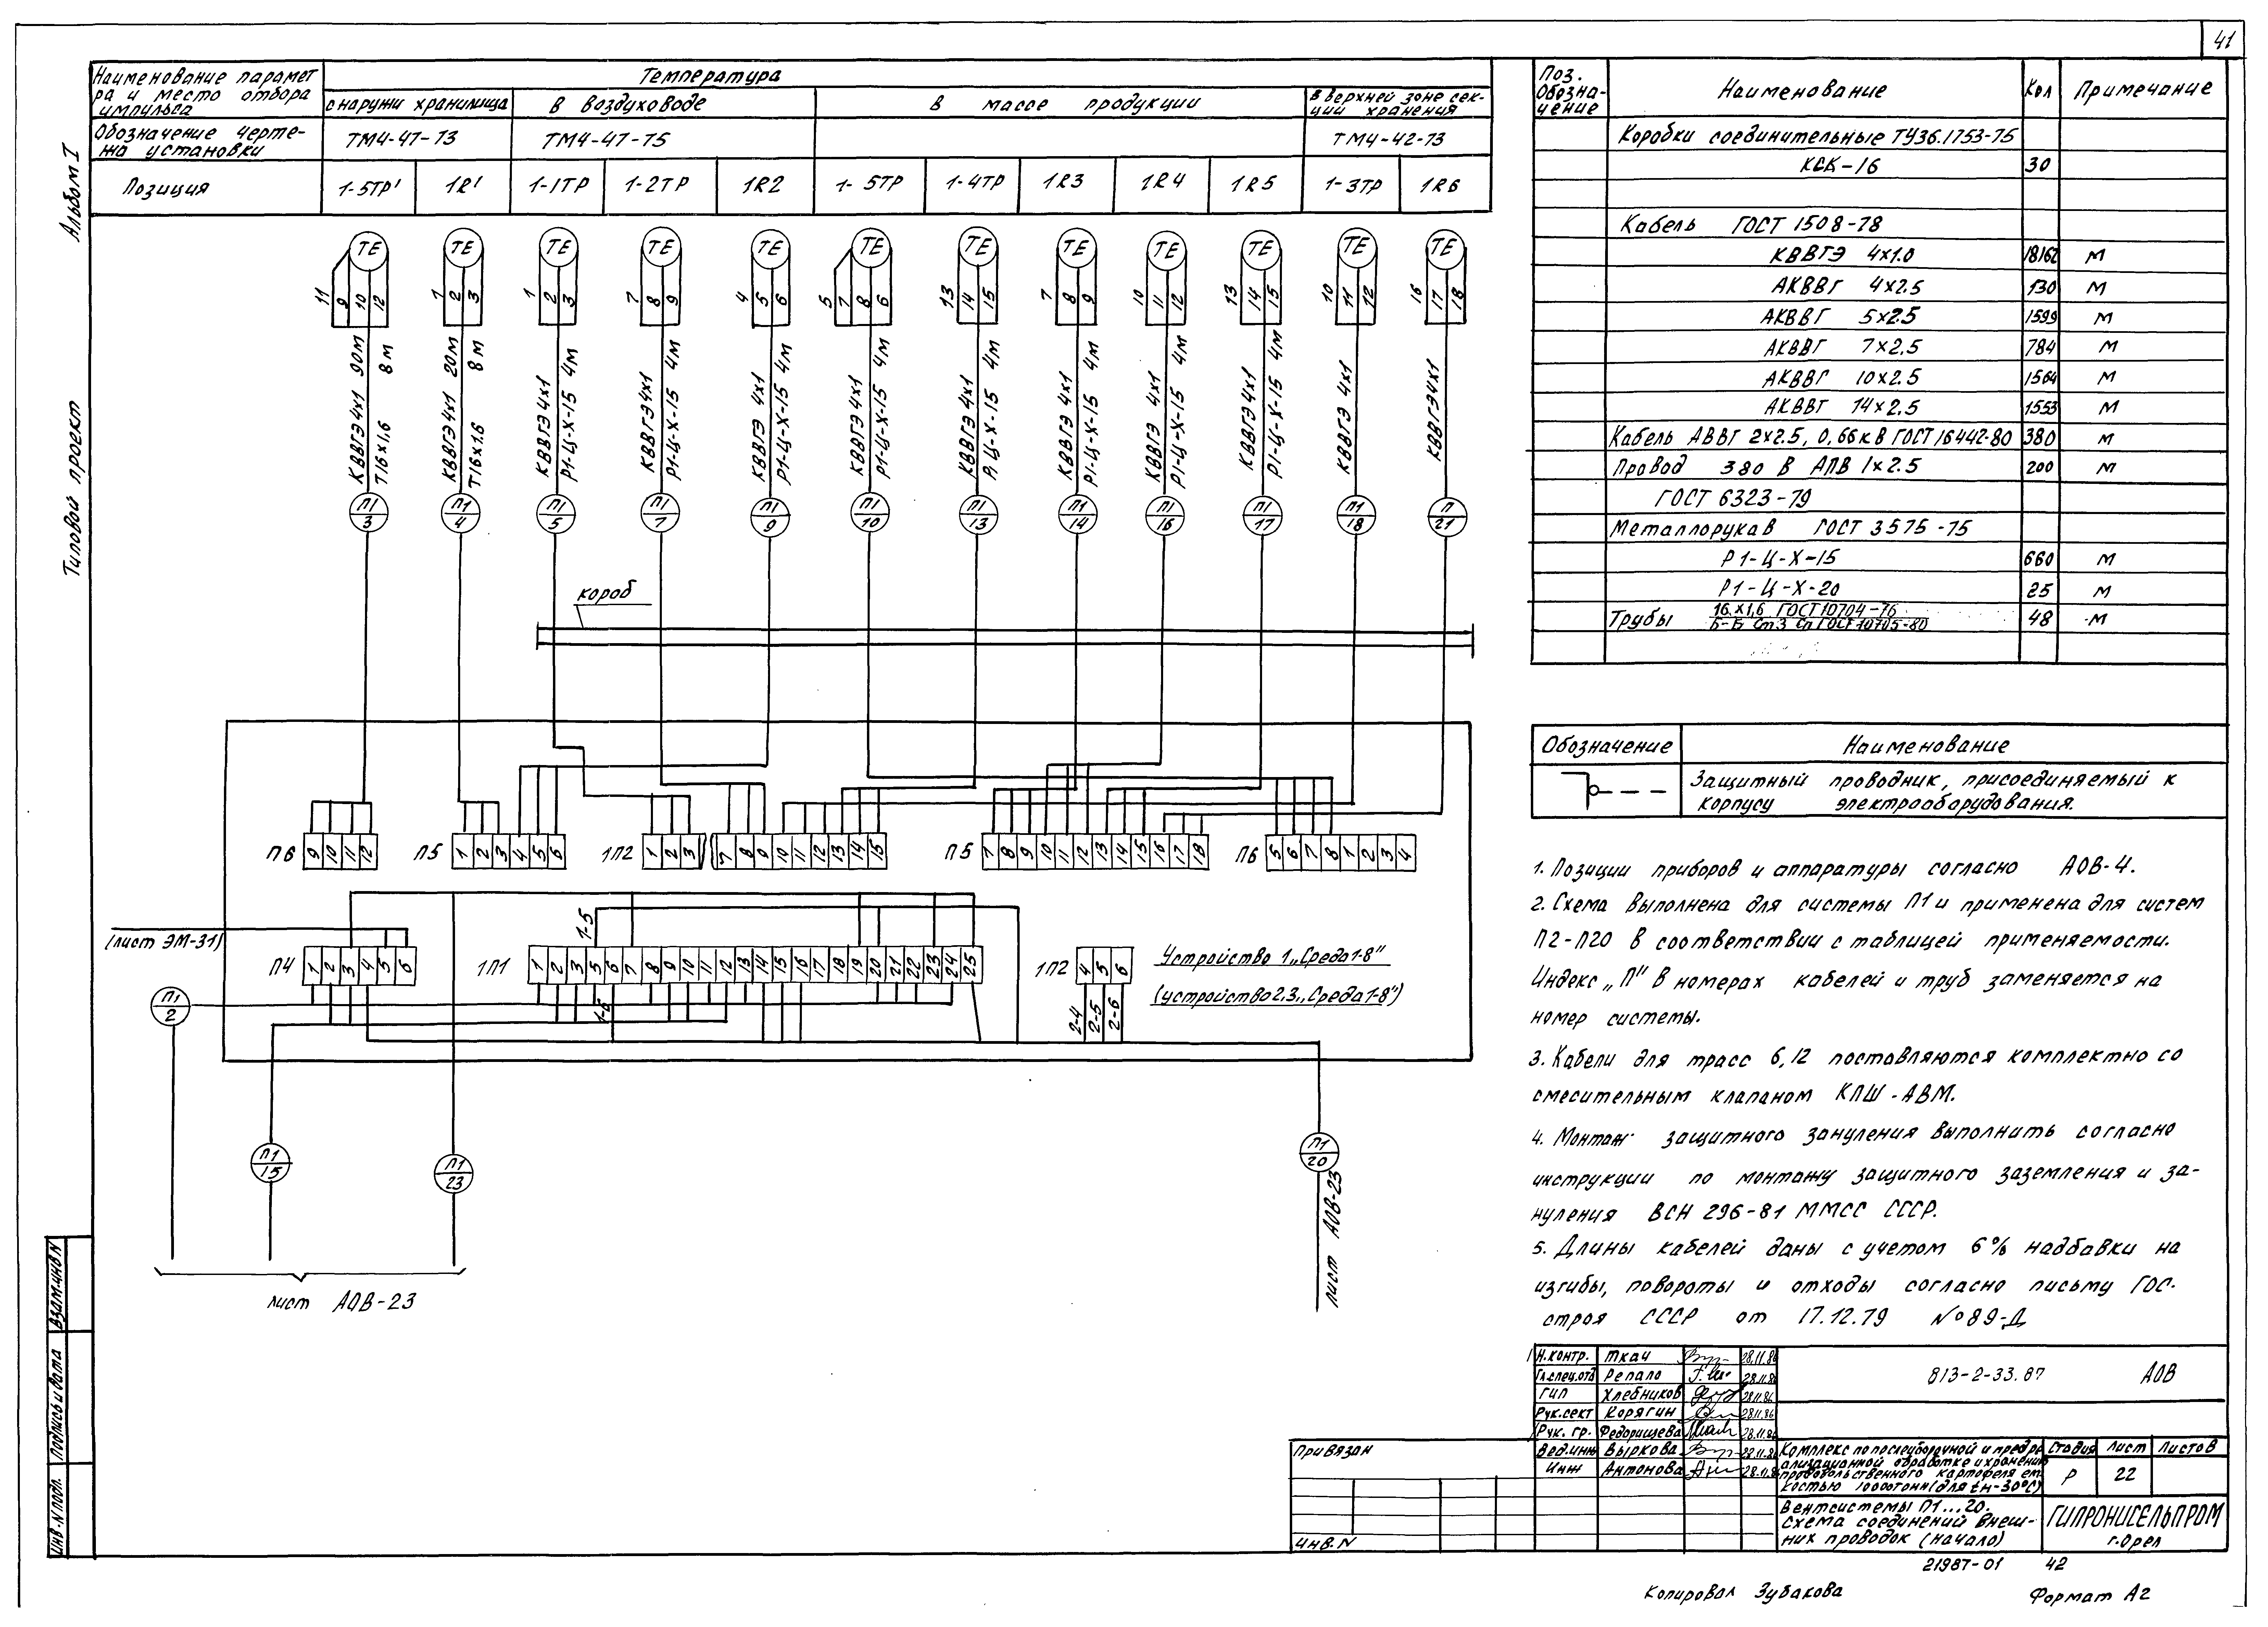 41
Альбом I
Типовой проект
Наименование парамет
ра и место отбора
импульса
Температура
снаружи хранилища
в воздуховоде
в массе продукции
в верхней зоне сек-
ции хранения
Обозначение черте-
жа установки
ТМ4-47-73
ТМ4-47-75
ТМ4-42-73
Позиция
1-5ТР'
1R'
1-1ТР
1-2ТР
1R2
1-5ТР
1-4ТР
1R3
1R4
1R5
1-3ТР
1R6
ТЕ ТЕ ТЕ ТЕ ТЕ ТЕ ТЕ ТЕ ТЕ ТЕ ТЕ ТЕ
11 9 10 12
1 2 3
1 2 3
7 8 9
4 5 6
5 7 8 6
13 14 15
7 8 9
10 11 12
13 14 15
10 11 12
16 17 18
КВВГЭ 4х1 90м
Т16х1,6 8м
КВВГЭ 4х1 20м
Т16х1.6 8м
КВВГЭ 4х1
Р1-Ц-Х-15 4м
КВВГЭ 4х1
Р1-Ц-Х-15 4м
КВВГЭ 4х1
Р1-Ц-Х-15 4м
КВВГЭ 4х1
Р1-Ц-Х-15 4м
КВВГЭ 4х1
Р Ц-Х-15 4м
КВВГЭ 4х1
Р1-Ц-Х-15 4м
КВВГЭ 4х1
Р1-Ц-Х-15 4м
КВВГЭ 4х1
Р1-Ц-Х-15 4м
КВВГЭ 4х1
КВВГЭ 4х1
П1 П1 П1 П1 П1 П1 П1 П1 П1 П1 П1 П
3 4 5 7 9 10 13 14 16 17 18 21
короб
П6 9 10 11 12
П5 1 2 3 4 5 6
1П2 1 2 3 7 8 9 10 11 12 13 14 15
П5 7 8 9 10 11 12 13 14 15 16 17 18
П6 5 6 7 8 1 2 3 4
(лист ЭМ-31)
П4 1 2 3 4 5 6
1-5
1П1 1 2 3 5 6 7 8 9 10 11 12 13 14 15 16 17 18 19 20 21 22 23 24 25
1-6
1П2 4 5 6
2-4 2-5 2-6
Устройство 1 „Среда 1-8"
(устройство 2.3 „Среда 1-8")
П1
2
П1
15
П1
23
П1
20
лист АОВ-23
лист АОВ-23
Поз.
Обозна-
чение
Наименование
Кол
Примечание
Коробки соединительные ТУ36.1753-75
КСК-16 30
Кабель ГОСТ 1508-78
КВВГЭ 4х1.0 18162 м
АКВВГ 4х2.5 130 м
АКВВГ 5х2.5 1599 м
АКВВГ 7х2.5 784 м
АКВВГ 10х2.5 1564 м
АКВВГ 14х2.5 1553 м
Кабель АВВГ 2х2.5, 0,66кВ ГОСТ 16442-80 380 м
Провод 380 В АПВ 1х2.5 200 м
ГОСТ 6323-79
Металлорукав ГОСТ 3575-75
Р1-Ц-Х-15 660 м
Р1-Ц-Х-20 25 м
Трубы 16х1,6 ГОСТ 10704-76 48 м
Б-Б Ст3 Сп ГОСТ 10705-80
Обозначение
Наименование
Защитный проводник, присоединяемый к
корпусу электрооборудования.
1. Позиции приборов и аппаратуры согласно АОВ-4.
2. Схема выполнена для системы П1 и применена для систем
П2-П20 в соответствии с таблицей применяемости.
Индекс „П" в номерах кабелей и труб заменяется на
номер системы.
3. Кабели для трасс 6,12 поставляются комплектно со
смесительным клапаном КПШ-АВМ.
4. Монтаж защитного зануления выполнить согласно
инструкции по монтажу защитного заземления и за-
нуления ВСН 296-81 ММСС СССР.
5. Длины кабелей даны с учетом 6% надбавки на
изгибы, повороты и отходы согласно письму Гос-
строя СССР от 17.12.79 №89-Д
Н.контр. Ткач 28.11.86
Гл.спец.отд Репало 28.11.86
ГИП Хлебников 28.11.86
Рук.сект Корягин 28.11.86
Рук. гр. Федорищева 28.11.86
Вед.инж Выркова 28.11.86
Инж Антонова 28.11.86
813-2-33.87 АОВ
Комплекс по послеуборочной и предре
ализационной обработке и хранению
продовольственного картофеля ем
костью 10000тонн (для tн-30°С)
Стадия Лист Листов
Р 22
Вентсистемы П1...20.
Схема соединений внеш-
них проводок (начало)
ГИПРОНИСЕЛЬПРОМ
г.Орел
Привязан
Инв. N
Взам.инв N
Подпись и дата
Инв. N подл.
21987-01 42
Копировал Зубакова
Формат А2